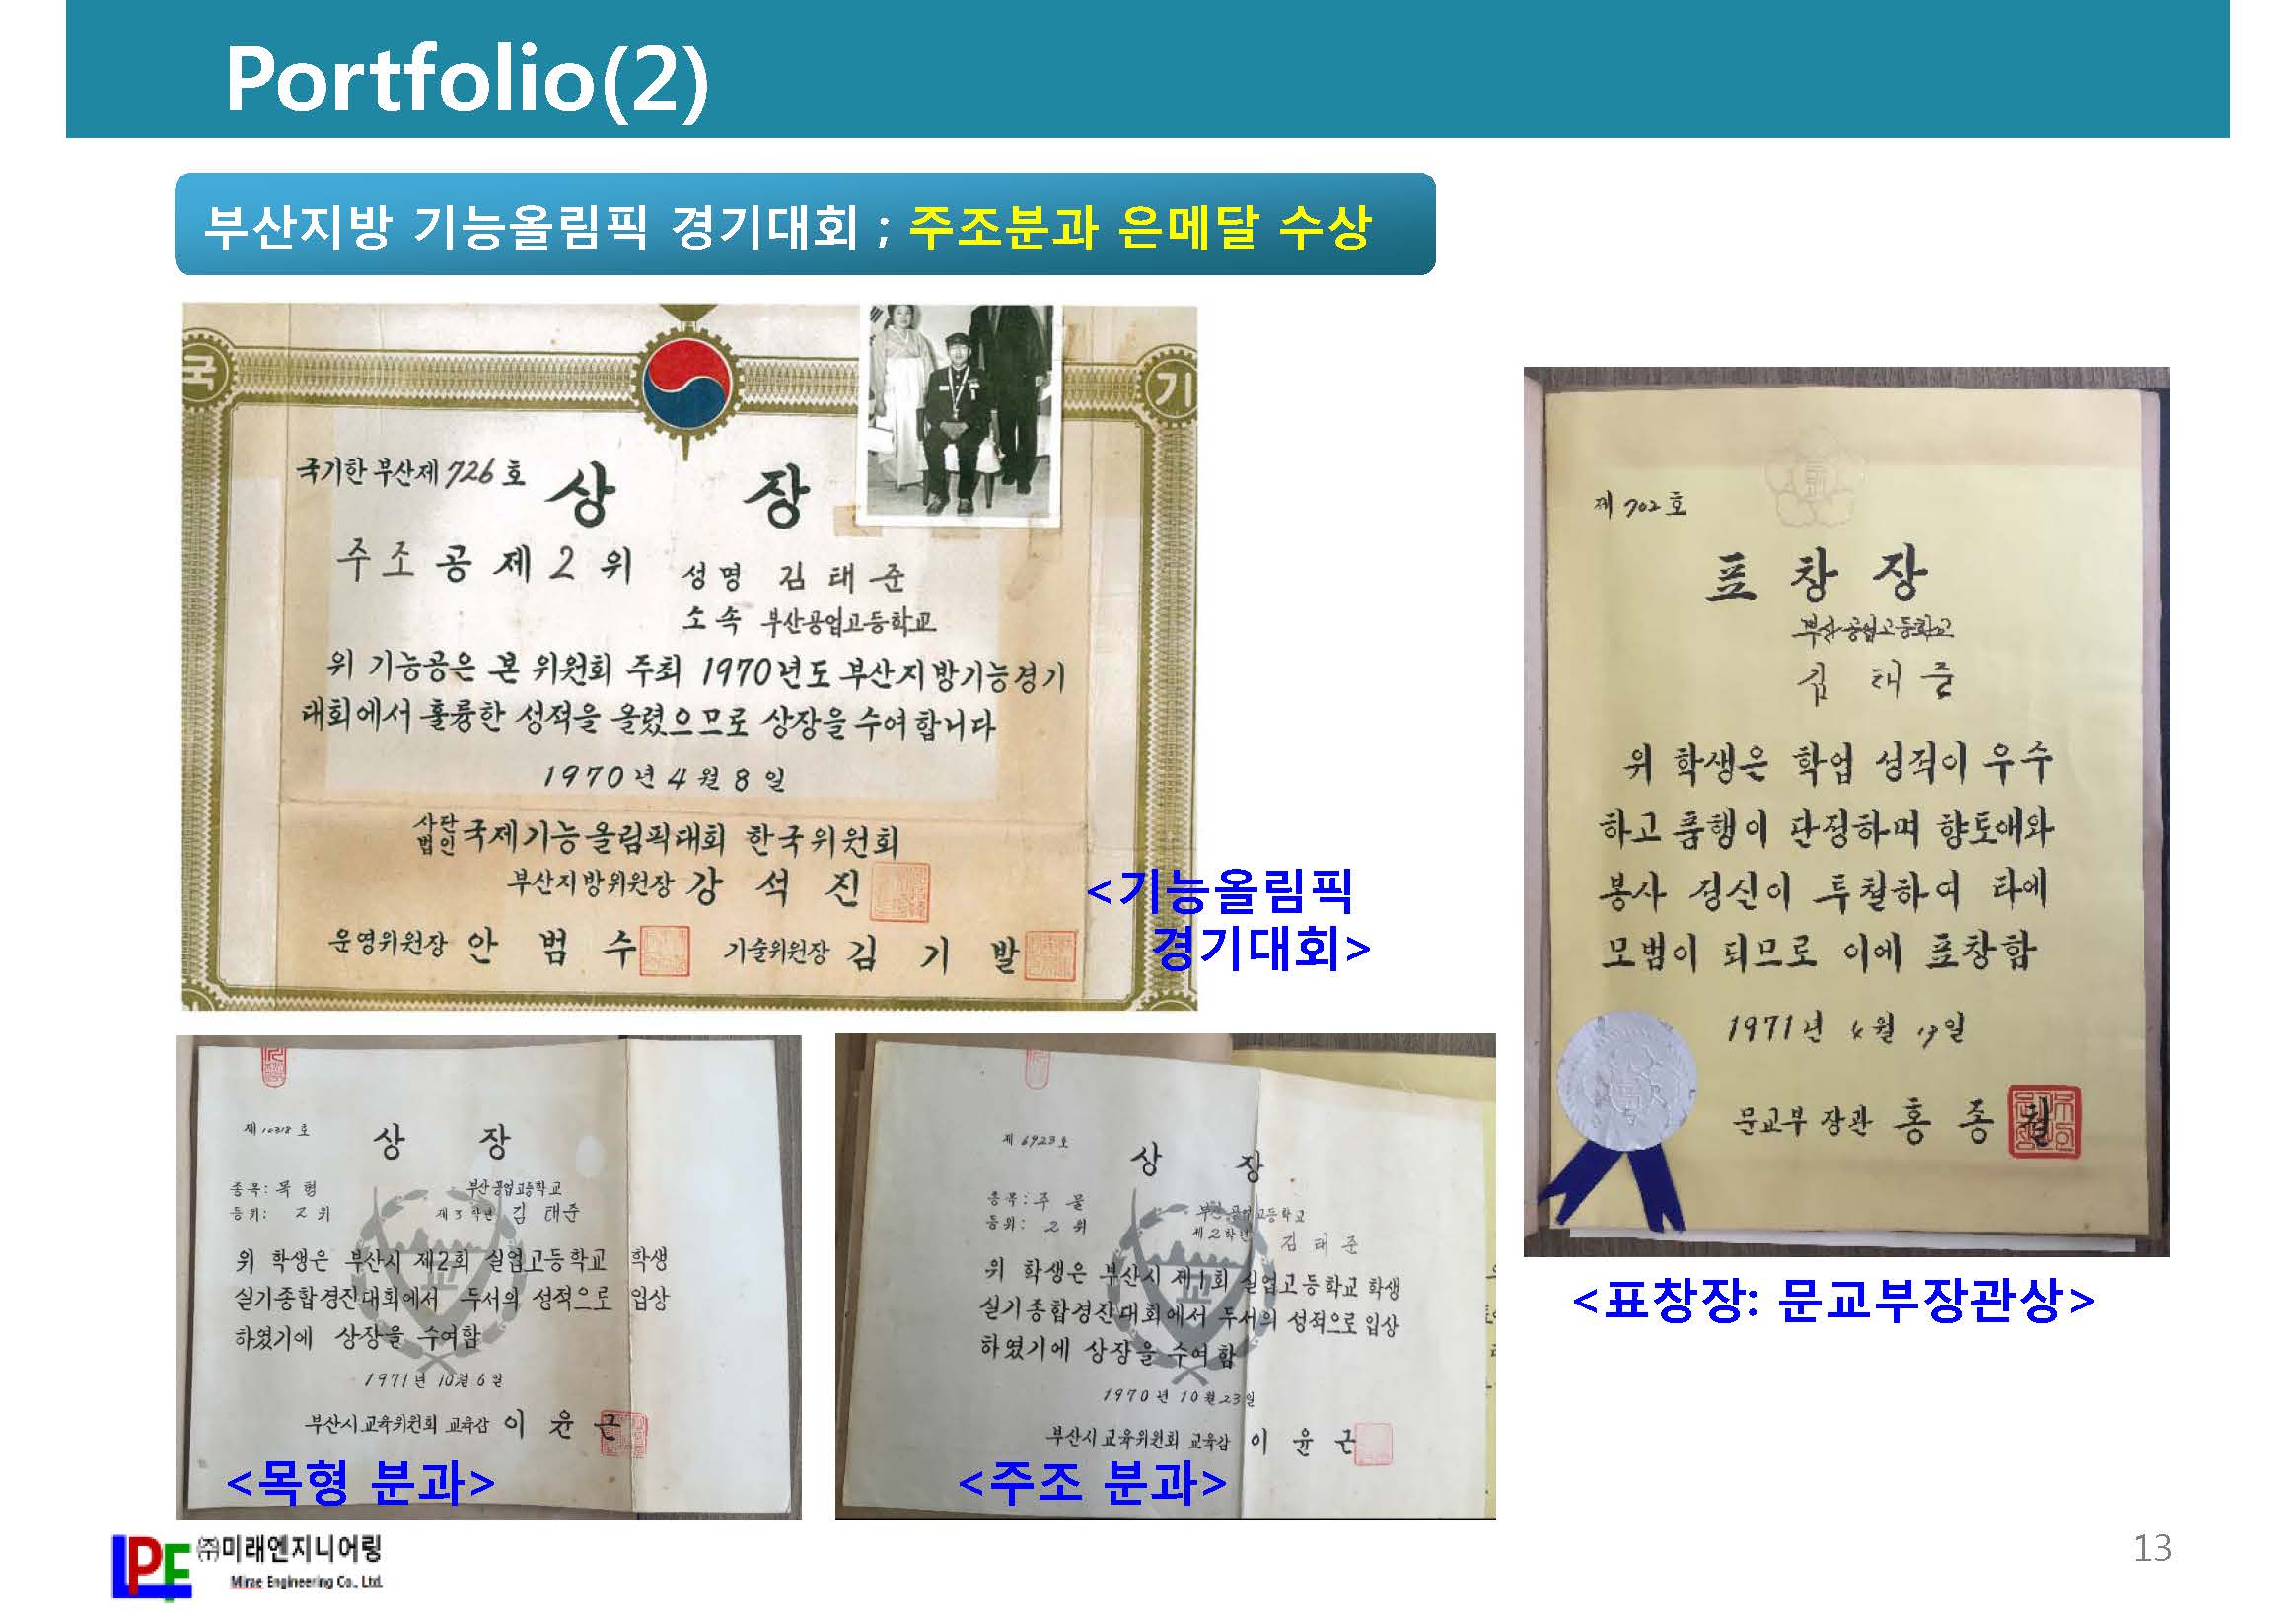 Portfolio(2)
부산지방 기능올림픽 경기대회 ; 주조분과 은메달 수상
국
기
국기한 부산제 726 호
상 장
주조공 제 2 위
성명 김태준
소속 부산공업고등학교
위 기능공은 본 위원회 주최 1970년도 부산지방기능경기
대회에서 훌륭한 성적을 올렸으므로 상장을 수여합니다
1970년 4월 8일
사단법인 국제기능올림픽대회 한국위원회
부산지방위원장 강석진
운영위원장 안범수 기술위원장 김기발
<기능올림픽
경기대회>
제 702 호
표창장
부산공업고등학교
김태준
위 학생은 학업 성적이 우수
하고 품행이 단정하며 향토애와
봉사 정신이 투철하여 타에
모범이 되므로 이에 표창함
1971년 4월 일
문교부 장관 홍종철
<표창장: 문교부장관상>
제 10318 호
상 장
종목: 목형
등위: 2위
부산공업고등학교
제3학년 김태준
위 학생은 부산시 제2회 실업고등학교 학생
실기종합경진대회에서 두서의 성적으로 입상
하였기에 상장을 수여함
1971년 10월 6일
부산시교육위원회 교육감 이윤근
<목형 분과>
제 6923 호
상 장
종목: 주물
등위: 2위
부산공업고등학교
제2학년 김태준
위 학생은 부산시 제1회 실업고등학교 학생
실기종합경진대회에서 두서의 성적으로 입상
하였기에 상장을 수여함
1970년 10월 23일
부산시교육위원회 교육감 이윤근
<주조 분과>
LPE
㈜미래엔지니어링
Mirae Engineering Co., Ltd.
13